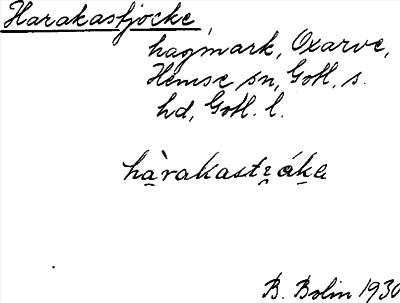 Harakastjocke,
hagmark, Oxarve,
Hemse sn, Gotl. s.
hd, Gotl. l.
B. Bolin 1930